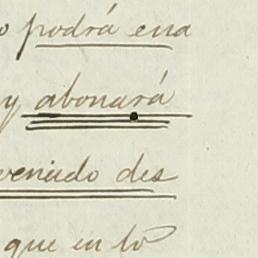 o podrá ena
y abonará
veniido des
que en lo